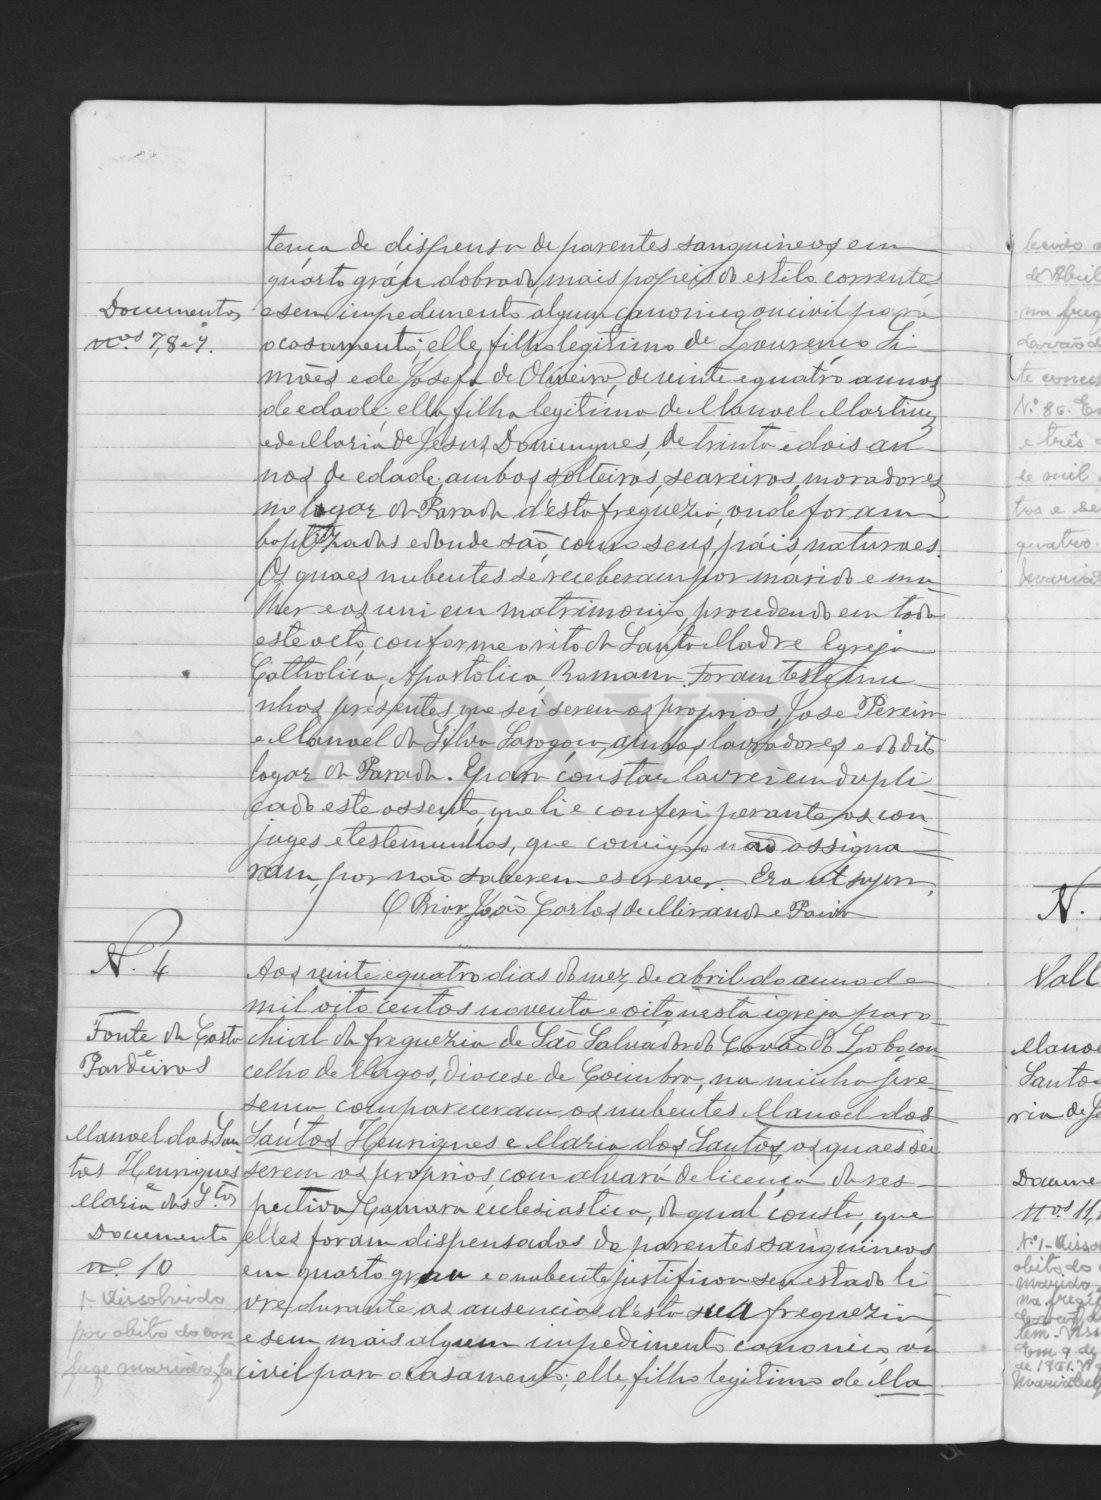 tença de dispensa de parentes sanguineos em
quarto gráu dobrado, mais papeis do estilo correntes
Documentos
e sem impedimento algum canonico ou civil para
nos 7, 8 e 9.
o casamento; elle, filho legitimo de Lourenço Si-
mões e de Josefa de Oliveira, de vinte e quatro annos
de edade; ella, filha legitima de Manoel Martins
e de Maria de Jesus Domingues, de trinta e dois an-
nos de edade; ambos solteiros, seareiros, moradores
no logar da Parada d'esta freguezia, onde foram
baptizados e donde são, como seus páis, naturaes.
Os quaes nubentes se receberam por marido e mu-
lher e os uni em matrimonio, procedendo em todo
este acto, conforme o rito da Santa Madre Egreja
Catholica, Apostolica, Romana. Foram testemu-
nhas presentes, que sei serem os proprios, Jose Pereira
e Manoel da Silva Saragoça, ambos lavradores e do dito
logar da Parada. E para constar lavrei em dupli-
cado este assento, que li e conferi perante os con-
juges e testemunhas, que comigo não assigna-
ram, por não saberem escrever. Era ut supra.
O Prior João Carlos de Miranda e Paiva
N. 4
Aos vinte e quatro dias do mez de abril do anno de
mil oito centos noventa e oito, nesta igreja paro-
Fonte da Costa
chial da freguezia de São Salvador do Covão do Lobo, con-
e
Pardeiros
celho de Vagos, Diocese de Coimbra, na minha pre-
sença compareceram os nubentes Manoel dos
Manoel dos San-
Santos Henriques e Maria dos Santos, os quaes sei
tos Henriques
serem os proprios, com alvará de licença da res-
e
Maria dos S.tos
pectiva Camara ecclesiastica, da qual consta, que
Documento
elles foram dispensados de parentes sanguineos
nº 10
em quarto grau e o nubente justificou seu estado li-
1- Dissolvido
vre durante as ausencias d'esta sua freguezia,
por obito do con-
e sem mais algum impedimento canonico ou
juge marido, fa-
civil para o casamento; elle, filho legitimo de Ma-
lecido
de Abril
na freg
te conce
Nº 86. Em
e três
e mil
tos e se
quatro.
N.
Vall
Manoe
Santos
ria de Je
Docume
nos 11,
Nº1- Disso
obito do
marido
na freg
Em 9 de
de 1961.